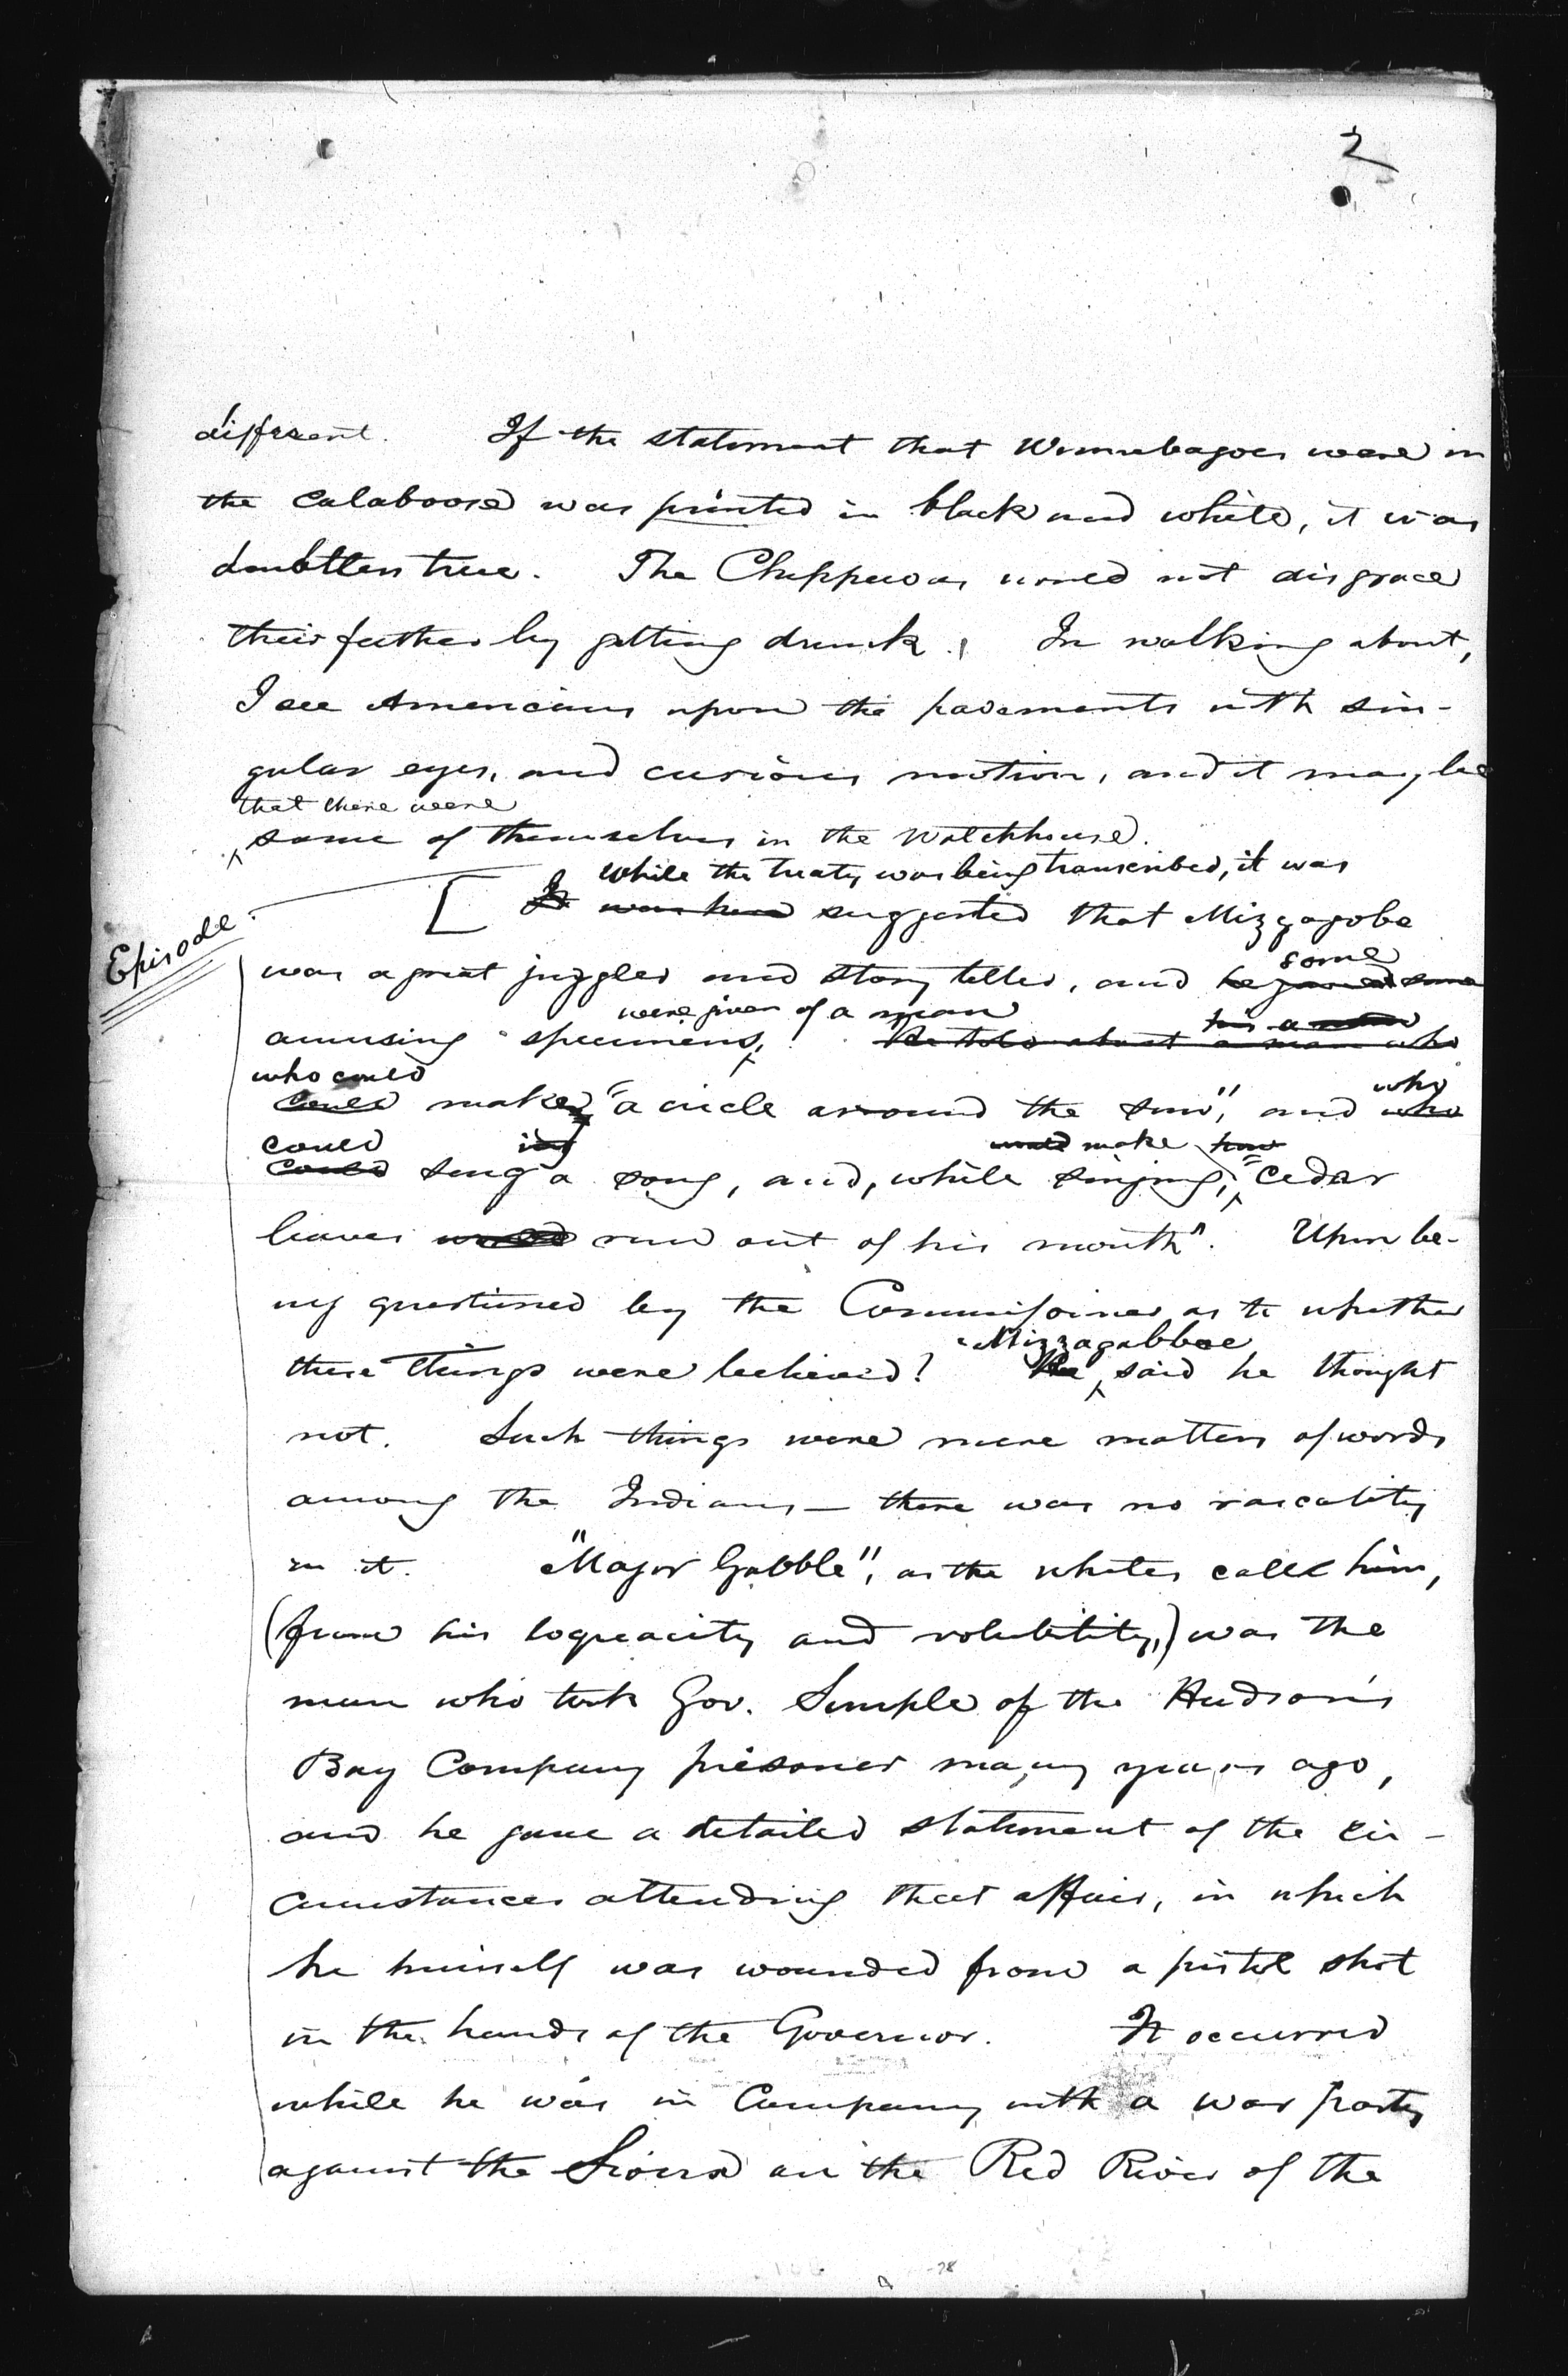 2
different. If the statement that Winnebagoes were in
the calaboose was printed in black and white, it was
doubtless true. The Chippewas would not disgrace
their father by getting drunk. In walking about,
I see Americans upon the pavements with sin-
gular eyes, and curious motion, and it may be
that there were
some of themselves in the watchhouse.
While the treaty was being transcribed, it was
Episode.
[ It was here suggested that Mizgagobe
was a great juggler and story teller, and he gave some
some
were given of a man
amusing specimens. He told about a man who
who could
could make "a circle around the sun", and who
who
could
could sing a song, and, while singing, "cedar
would make how
leaves would run out of his mouth". Upon be-
ing questioned by the Commissioner as to whether
Mizzagabboe
these things were believed? He said he thought
not. Such things were mere matters of words
among the Indians — there was no rascality
in it. "Major Gabble", as the whites call him,
(from his loquacity and volubility,) was the
man who took Gov. Semple of the Hudson's
Bay Company prisoner many years ago,
and he gave a detailed statement of the cir-
cumstances attending that affair, in which
he himself was wounded from a pistol shot
in the hands of the Governor. It occurred
while he was in Company with a war party
against the Sioux on the Red River of the